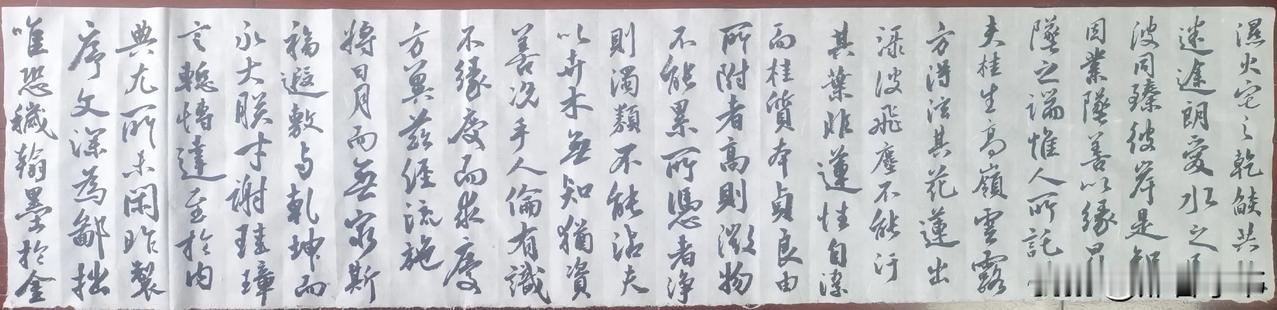 濕火宅之乾燄共
迷途朗愛水之
波同臻彼岸是知
因業墜善以緣昇
墜之端惟人所託
夫桂生高嶺雲露
方得泫其花蓮出
淥波飛塵不能污
其葉非蓮性自潔
而桂質本貞良由
所附者高則微物
不能累所憑者淨
則濁類不能沾夫
以卉木無知猶資
善況乎人倫有識
不緣慶而求慶
方冀茲經流施
將日月而無窮斯
福遐敷與乾坤而
永大朕才謝珪璋
言慙博達至於內
典尤所未閑昨製
序文深為鄙拙
唯恐穢翰墨於金